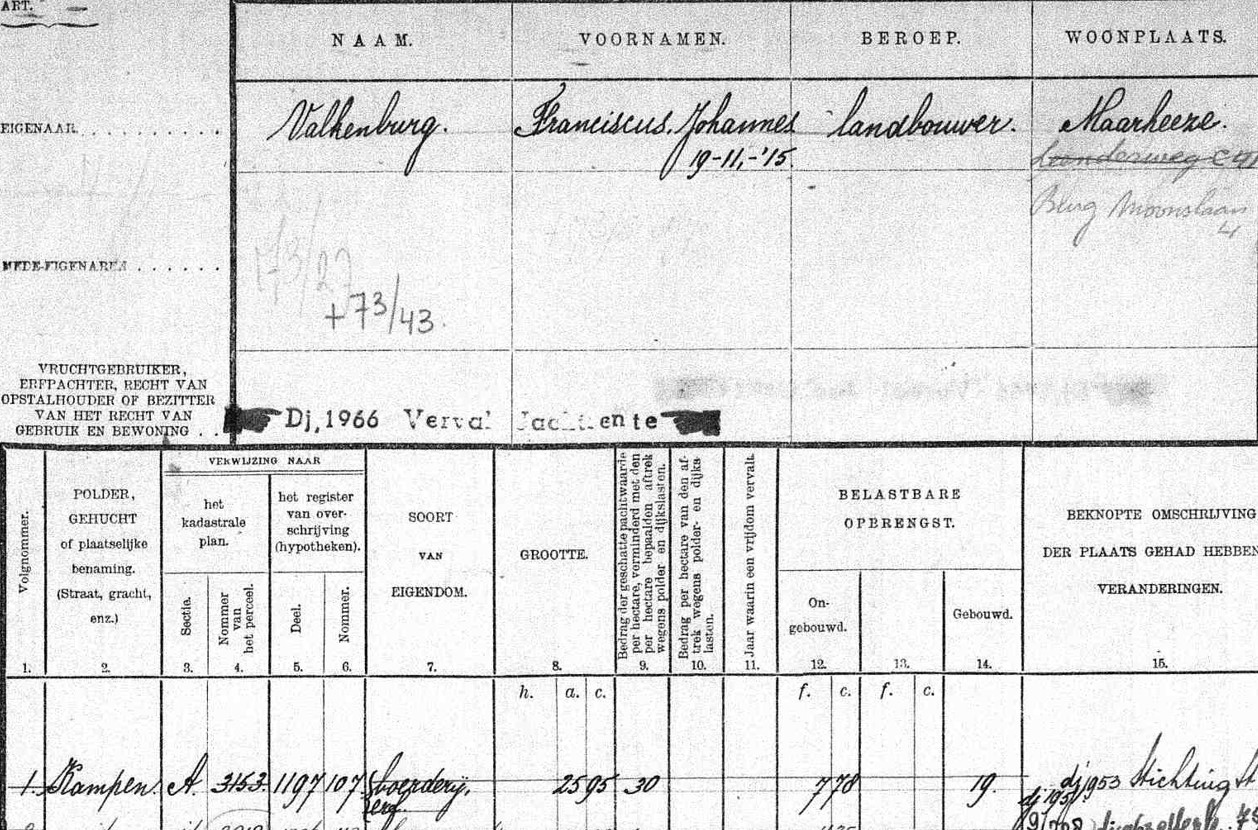 ART.
NAAM. VOORNAMEN. BEROEP. WOONPLAATS.
EIGENAAR. Valkenburg. Franciscus. Johannes landbouwer. Maarheeze.
19-11,-'15.
4
MEDE-EIGENAREN
+73/43.
VRUCHTGEBRUIKER,
ERFPACHTER, RECHT VAN
OPSTALHOUDER OF BEZITTER
VAN HET RECHT VAN
GEBRUIK EN BEWONING . .
Dj, 1966 Verval
Volgnommer.
1.
POLDER,
GEHUCHT
of plaatselijke
benaming.
(Straat, gracht,
enz.)
2.
VERWIJZING NAAR
het
kadastrale
plan.
Sectie.
3.
Nommer
van
het perceel.
4.
het register
van over-
schrijving
(hypotheken).
Deel.
5.
Nommer.
6.
SOORT
VAN
EIGENDOM.
7.
GROOTTE.
8.
Bedrag der geschatte pachtwaarde
per hectare, verminderd met den
per hectare bepaalden aftrek
wegens polder en dijkslasten.
9.
Bedrag per hectare van den af-
trek wegens polder- en dijks-
lasten.
10.
Jaar waarin een vrijdom vervalt.
11.
BELASTBARE
OPBRENGST.
On-
gebouwd.
12.
13.
Gebouwd.
14.
BEKNOPTE OMSCHRIJVING
DER PLAATS GEHAD HEBBEN
VERANDERINGEN.
15.
h. a. c. f. c. f. c.
1. Kampen. A. 3153. 1197 107 boerderij, 25 95 30 7 78 19. dj 1953 Stichting
erf.